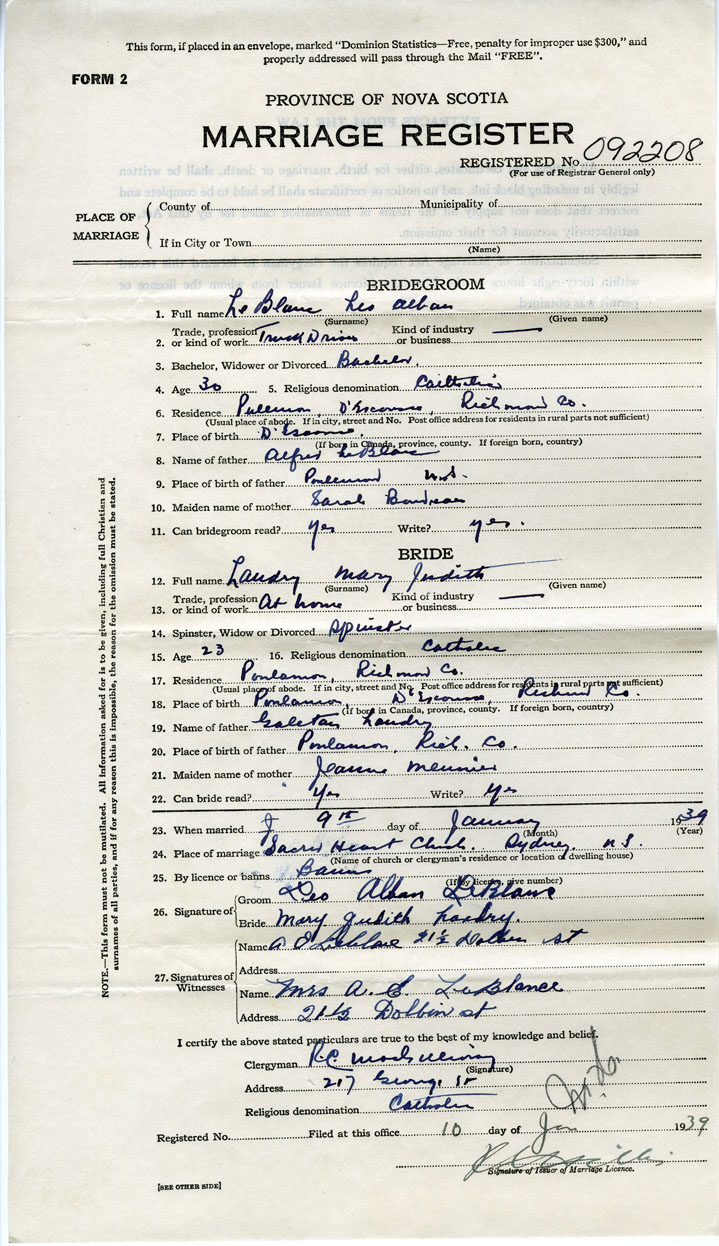 This form, if placed in an envelope, marked "Dominion Statistics—Free, penalty for improper use $300," and
properly addressed will pass through the Mail "FREE".
FORM 2
PROVINCE OF NOVA SCOTIA
MARRIAGE REGISTER
REGISTERED No. 092208
(For use of Registrar General only)
PLACE OF MARRIAGE
County of Municipality of
If in City or Town
(Name)
BRIDEGROOM
1. Full name LeBlanc Leo Alban
(Surname) (Given name)
2. Trade, profession or kind of work Truck Driver Kind of industry or business —
3. Bachelor, Widower or Divorced Bachelor
4. Age 30 5. Religious denomination Catholic
6. Residence D'Escousse, Richmond Co.
(Usual place of abode. If in city, street and No. Post office address for residents in rural parts not sufficient)
7. Place of birth D'Escousse
(If born in Canada, province, county. If foreign born, country)
8. Name of father Alfred LeBlanc
9. Place of birth of father Poulamon N.S.
10. Maiden name of mother Sarah Boudreau
11. Can bridegroom read? yes Write? yes.
BRIDE
12. Full name Landry Mary Judith
(Surname) (Given name)
13. Trade, profession or kind of work At home Kind of industry or business —
14. Spinster, Widow or Divorced Spinster
15. Age 23 16. Religious denomination Catholic
17. Residence Poulamon, Richmond Co.
(Usual place of abode. If in city, street and No. Post office address for residents in rural parts not sufficient)
18. Place of birth Poulamon, D'Escousse, Richmond Co.
(If born in Canada, province, county. If foreign born, country)
19. Name of father Landry
20. Place of birth of father Poulamon, Rich. Co.
21. Maiden name of mother Jeanne Meunier
22. Can bride read? Yes Write? Yes
23. When married 9th day of January 1939
(Month) (Year)
24. Place of marriage Sacred Heart Church. Sydney. N.S.
(Name of church or clergyman's residence or location of dwelling house)
25. By licence or banns Banns
(If by licence, give number)
26. Signature of
Groom Leo Alban LeBlanc
Bride Mary Judith Landry.
27. Signatures of Witnesses
Name 21½ Dolbin st
Address
Name Mrs A. E. LeBlance
Address 21½ Dolbin st
I certify the above stated particulars are true to the best of my knowledge and belief.
Clergyman R.C. MacGillivray
(Signature)
Address 217 George St
Religious denomination Catholic
Registered No. Filed at this office 10 day of Jan 1939
Signature of Issuer of Marriage Licence.
[SEE OTHER SIDE]
NOTE.—This form must not be mutilated. All information asked for is to be given, including full Christian and
surnames of all parties, and if for any reason this is impossible, the reason for the omission must be stated.